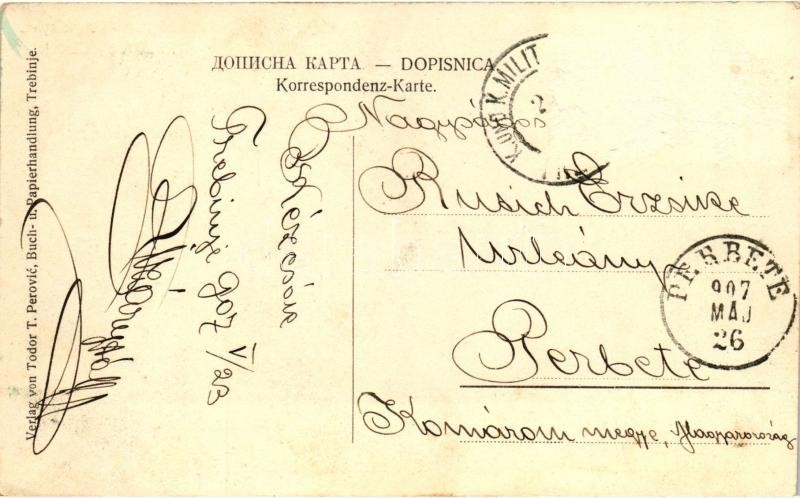 ДОПИСНА КАРТА. — DOPISNICA.
Korrespondenz-Karte.
K. UND K. MILIT
2
Nagyságos
Rusich Erzsike
Urleány
Perbete
Komárom megye, Magyarország
PERBETE
907
MÁJ
26
Trebinje 907 V/23
Verlag von Todor T. Perović, Buch- u. Papierhandlung, Trebinje.